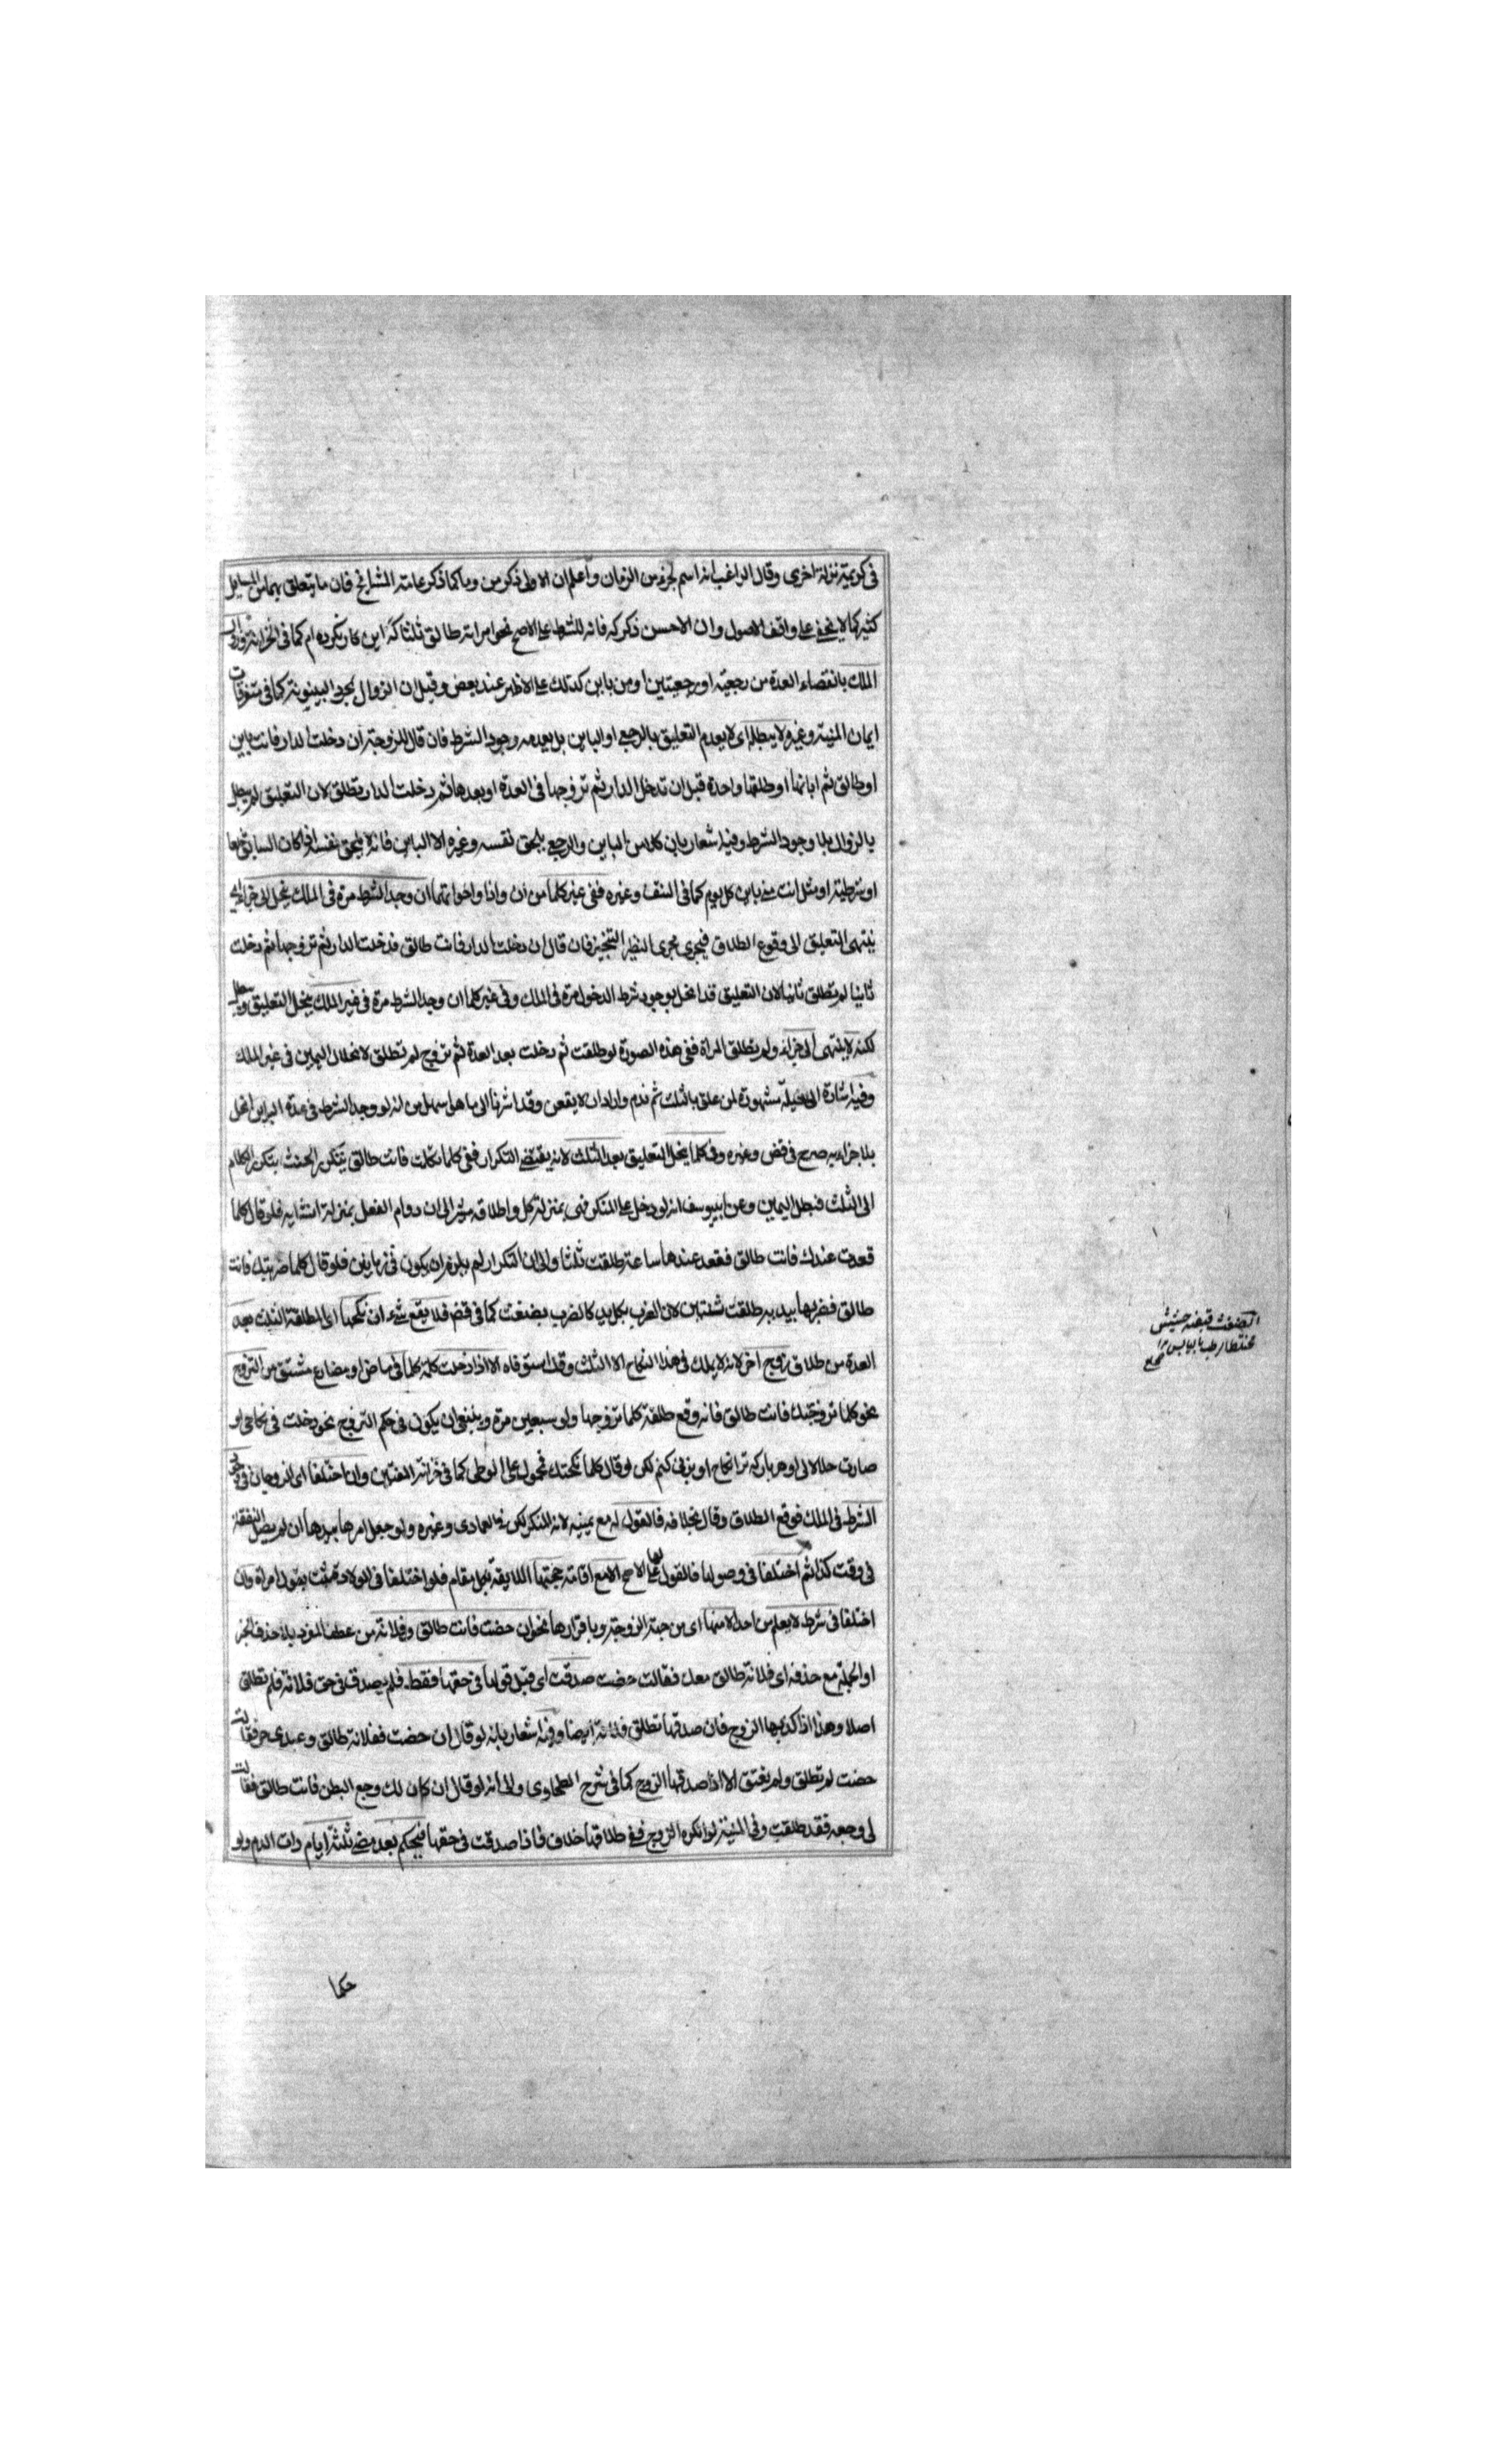 في كريمة نزلة اخرى وقال الراغب انه اسم لجزء من الزمان واعلم ان الاولى ذكر من وما كما ذكر عامة المشايخ فان ما يتعلق بهما من المسايل
كثير كما لا يخفى على واقف الاصول وان الاحسن ذكر كه فانه للشرط على الاصح نحو امراته طالق ثلثا كه اين كار نكرده ام كما في الخزانة وزوال
الملك بانقضاء العدة من رجعية او رجعيتين او من باين كذلك على الاظهر عند بعض وقيل ان الزوال بمجرد البينونة كما في متفرقات
ايمان المنية وغيره لا يبطله اى لا يعدم التعليق بالرجعي او الباين بل يعدمه وجود الشرط فان قال للزوجة ان دخلت الدار فانت باين
او طالق ثم ابانها او طلقها واحدة قبل ان تدخل الدار ثم تزوجها في العدة او بعدها ثم دخلت الدار تطلق لان التعليق لم يبطل
بالزوال بلا وجود الشرط وفيه اشعار بان كلا من الباين والرجعي يلحق نفسه وغيره الا الباين فانه لا يلحق نفسه اذا كان السابق
او شرطية او مثل انت مني باين كل يوم كما في النتف وغيره ففي غير كلما من ان واذا واخواتهما ان وجد الشرط مرة في الملك ينحل الى جزاء اى
ينتهي التعليق الى وقوع الطلاق فيجري مجرى النظير التنجيز فان قال ان دخلت الدار فانت طالق فدخلت الدار ثم تزوجها ثم دخلت
ثانيا لم تطلق ثانيا لان التعليق قد انحل بوجود شرط الدخول مرة في الملك وفي غير كلما ان وجد الشرط مرة في غير الملك ينحل التعليق ويبطل
لكنه لا ينتهي الى جزاء ولم يطلق المراة ففي هذه الصورة لو طلقت ثم دخلت بعد العدة ثم تزوج لم تطلق لانحلال اليمين في غير الملك
وفيه اشارة الى حيلة مشهورة لمن علق بالثلث ثم ندم واراد ان لا يقعن وقد اشرنا الى ما هو اسهل من انه لو وجد الشرط في عدة الباين انحل
بلا جزاء به صرح في قض وغيره وفي كلما ينحل التعليق بعد الثلث لانه يقتضي التكرار ففي كلما تكلمت فانت طالق يتكرر الحنث بتكرر الكلام
الى الثلث فبطل اليمين وعن ابي يوسف انه لو دخل على المنكر فهي بمنزلة كل واطلاقه مشير الى ان دوام الفعل بمنزلة انشايه فلو قال كلما
قعدت عندك فانت طالق فقعد عندها ساعة طلقت ثلثا والى ان التكرار لم يلزم ان يكون في زمانين فلو قال كلما ضربتك فانت
طالق فضربها بيديه طلقت ثنتين لان الضرب بكل يد كالضرب بضغث كما في قض فلا يقع شيء ان نكحها اى المطلقة الثلث بعد
العدة من طلاق زوج اخر لانه لا يملك في هذا النكاح الا الثلث وقد استوفاه الا اذا دخلت كلمة كلما في ماض او مضارع مشتق من التزوج
نحو كلما تزوجتك فانت طالق فانه وقع طلقة كلما تزوجها ولو سبعين مرة وينبغي ان يكون في حكم التزوج نحو دخلت في نكاحي او
صارت حلالا لي او هر بار كه ترا نكاح او بزني كنم لكن لو قال كلما نكحتك فمحمول على الوطي كما في خزانة المفتين وان اختلفا اى الزوجان في وجود
الشرط في الملك فوقع الطلاق وقال بخلافه فالقول له مع يمينه لانه المنكر لكن في العمادى وغيره ولو جعل امرها بيدها ان لم يصل النفقة
في وقت كذا ثم اختلفا في وصولها فالقول لها على الاصح الا مع اقامة حجتها اللايقة بكل مقام فلو اختلفا في الولادة يثبت بقول امراة وان
اختلفا في شرط لا يعلم من احد الا منها اى من جهة الزوجة وباقرارها نحو ان حضت فانت طالق وفلانة من عطف المفرد بلا حذف الخبر
او الجملة مع حذفه اى فلانة طالق معك فقالت حضت صدقت اى قبل قولها في حقها فقط فلم يصدق في حق فلانة فلم تطلق
اصلا وهذا اذا كذبها الزوج فان صدقها تطلق فلانة ايضا وفيه اشعار بانه لو قال ان حضت ففلانة طالق وعبدى حر فقالت
حضت لم تطلق ولم يعتق الا اذا صدقها الزوج كما في شرح الطحاوى والى انه لو قال ان كان لك وجع البطن فانت طالق فقالت
لي وجعه فقد طلقت وفي المنية لو انكره الزوج ففي طلاقها خلاف فاذا صدقت في حقها فيحكم بعد مضي ثلثة ايام رات الدم ولو
الضغث قبضة حشيش
مختلط رطبه بيابسه
حكما